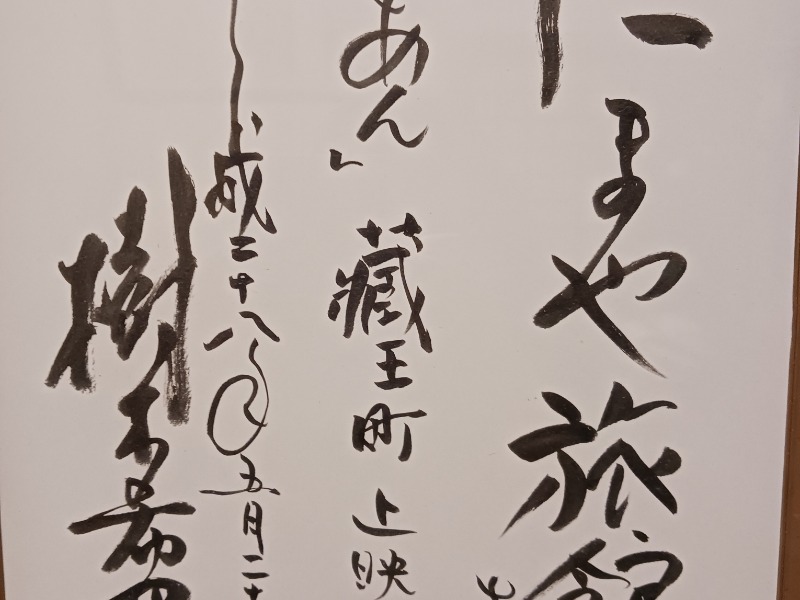 まや旅館
あん」蔵王町上映
成二十八年五月二十
樹木希